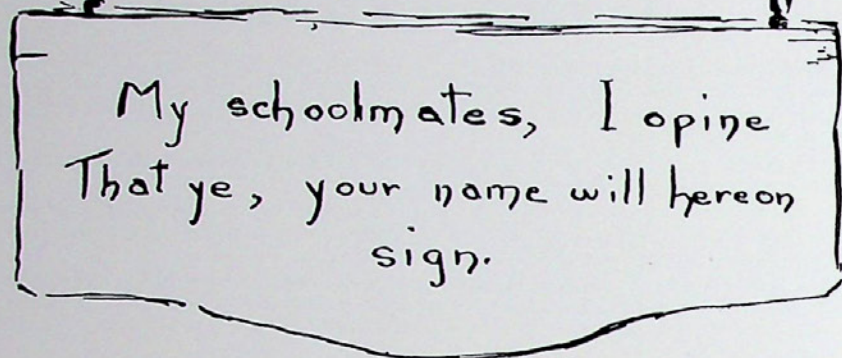 My schoolmates, I opine
That ye, your name will hereon
sign.